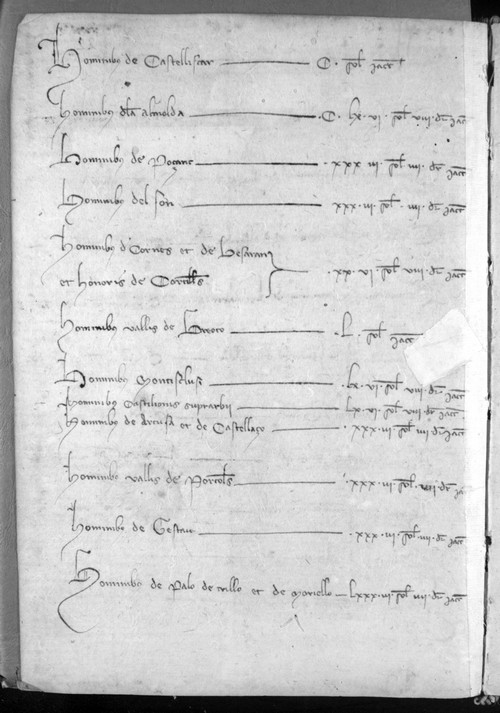 Hominibus de Castelliscar C. sol. iacc.
hominibus dla almolda .C. lx. vi. sol. viii. dr. iacc.
Hominibus de xxx iii. sol. iiii. dr. iacc.
Hominibus del fon xxx. iii. sol. iiii. dr. iacc.
hominibus d et de
et honoris de xx. vi. sol. viii. dr. iacc.
hominibus vallis de L. sol. iacc.
Hominibus Montisclus lx. vi. sol. viii. dr. iacc.
hominibus Castilionis suprarbii lx. vi. sol. viii. dr. iacc.
hominibus de Arcusa et de Castellaço xxx. iii. sol. iiii. dr. iacc.
hominibus vallis de xxx. iii. sol. iiii. dr. ia
hominibus de Gestau xxx. iii. sol. iiii. dr. iacc.
Hominibus de Palo de trillo et de Moriello lxxx. iii. sol. iiii. dr. iacc.